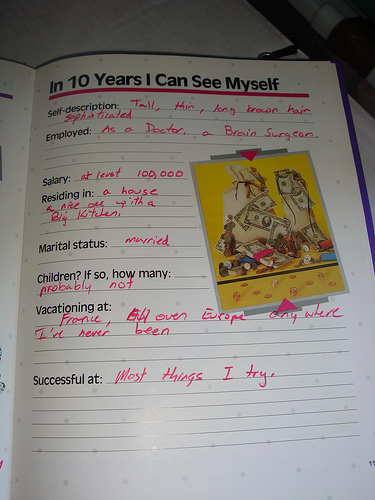 In 10 Years I Can See Myself
Self-description: Tall, thin, long brown hair
sophisticated
Employed: As a Doctor, a Brain Surgeon.
Salary: at least 100,000
Residing in: a house
a nice one with a
Big Kitchen.
Marital status: married
Children? If so, how many:
probably not
Vacationing at:
France, All over Europe anywhere
I've never been
Successful at: Most things I try.
11